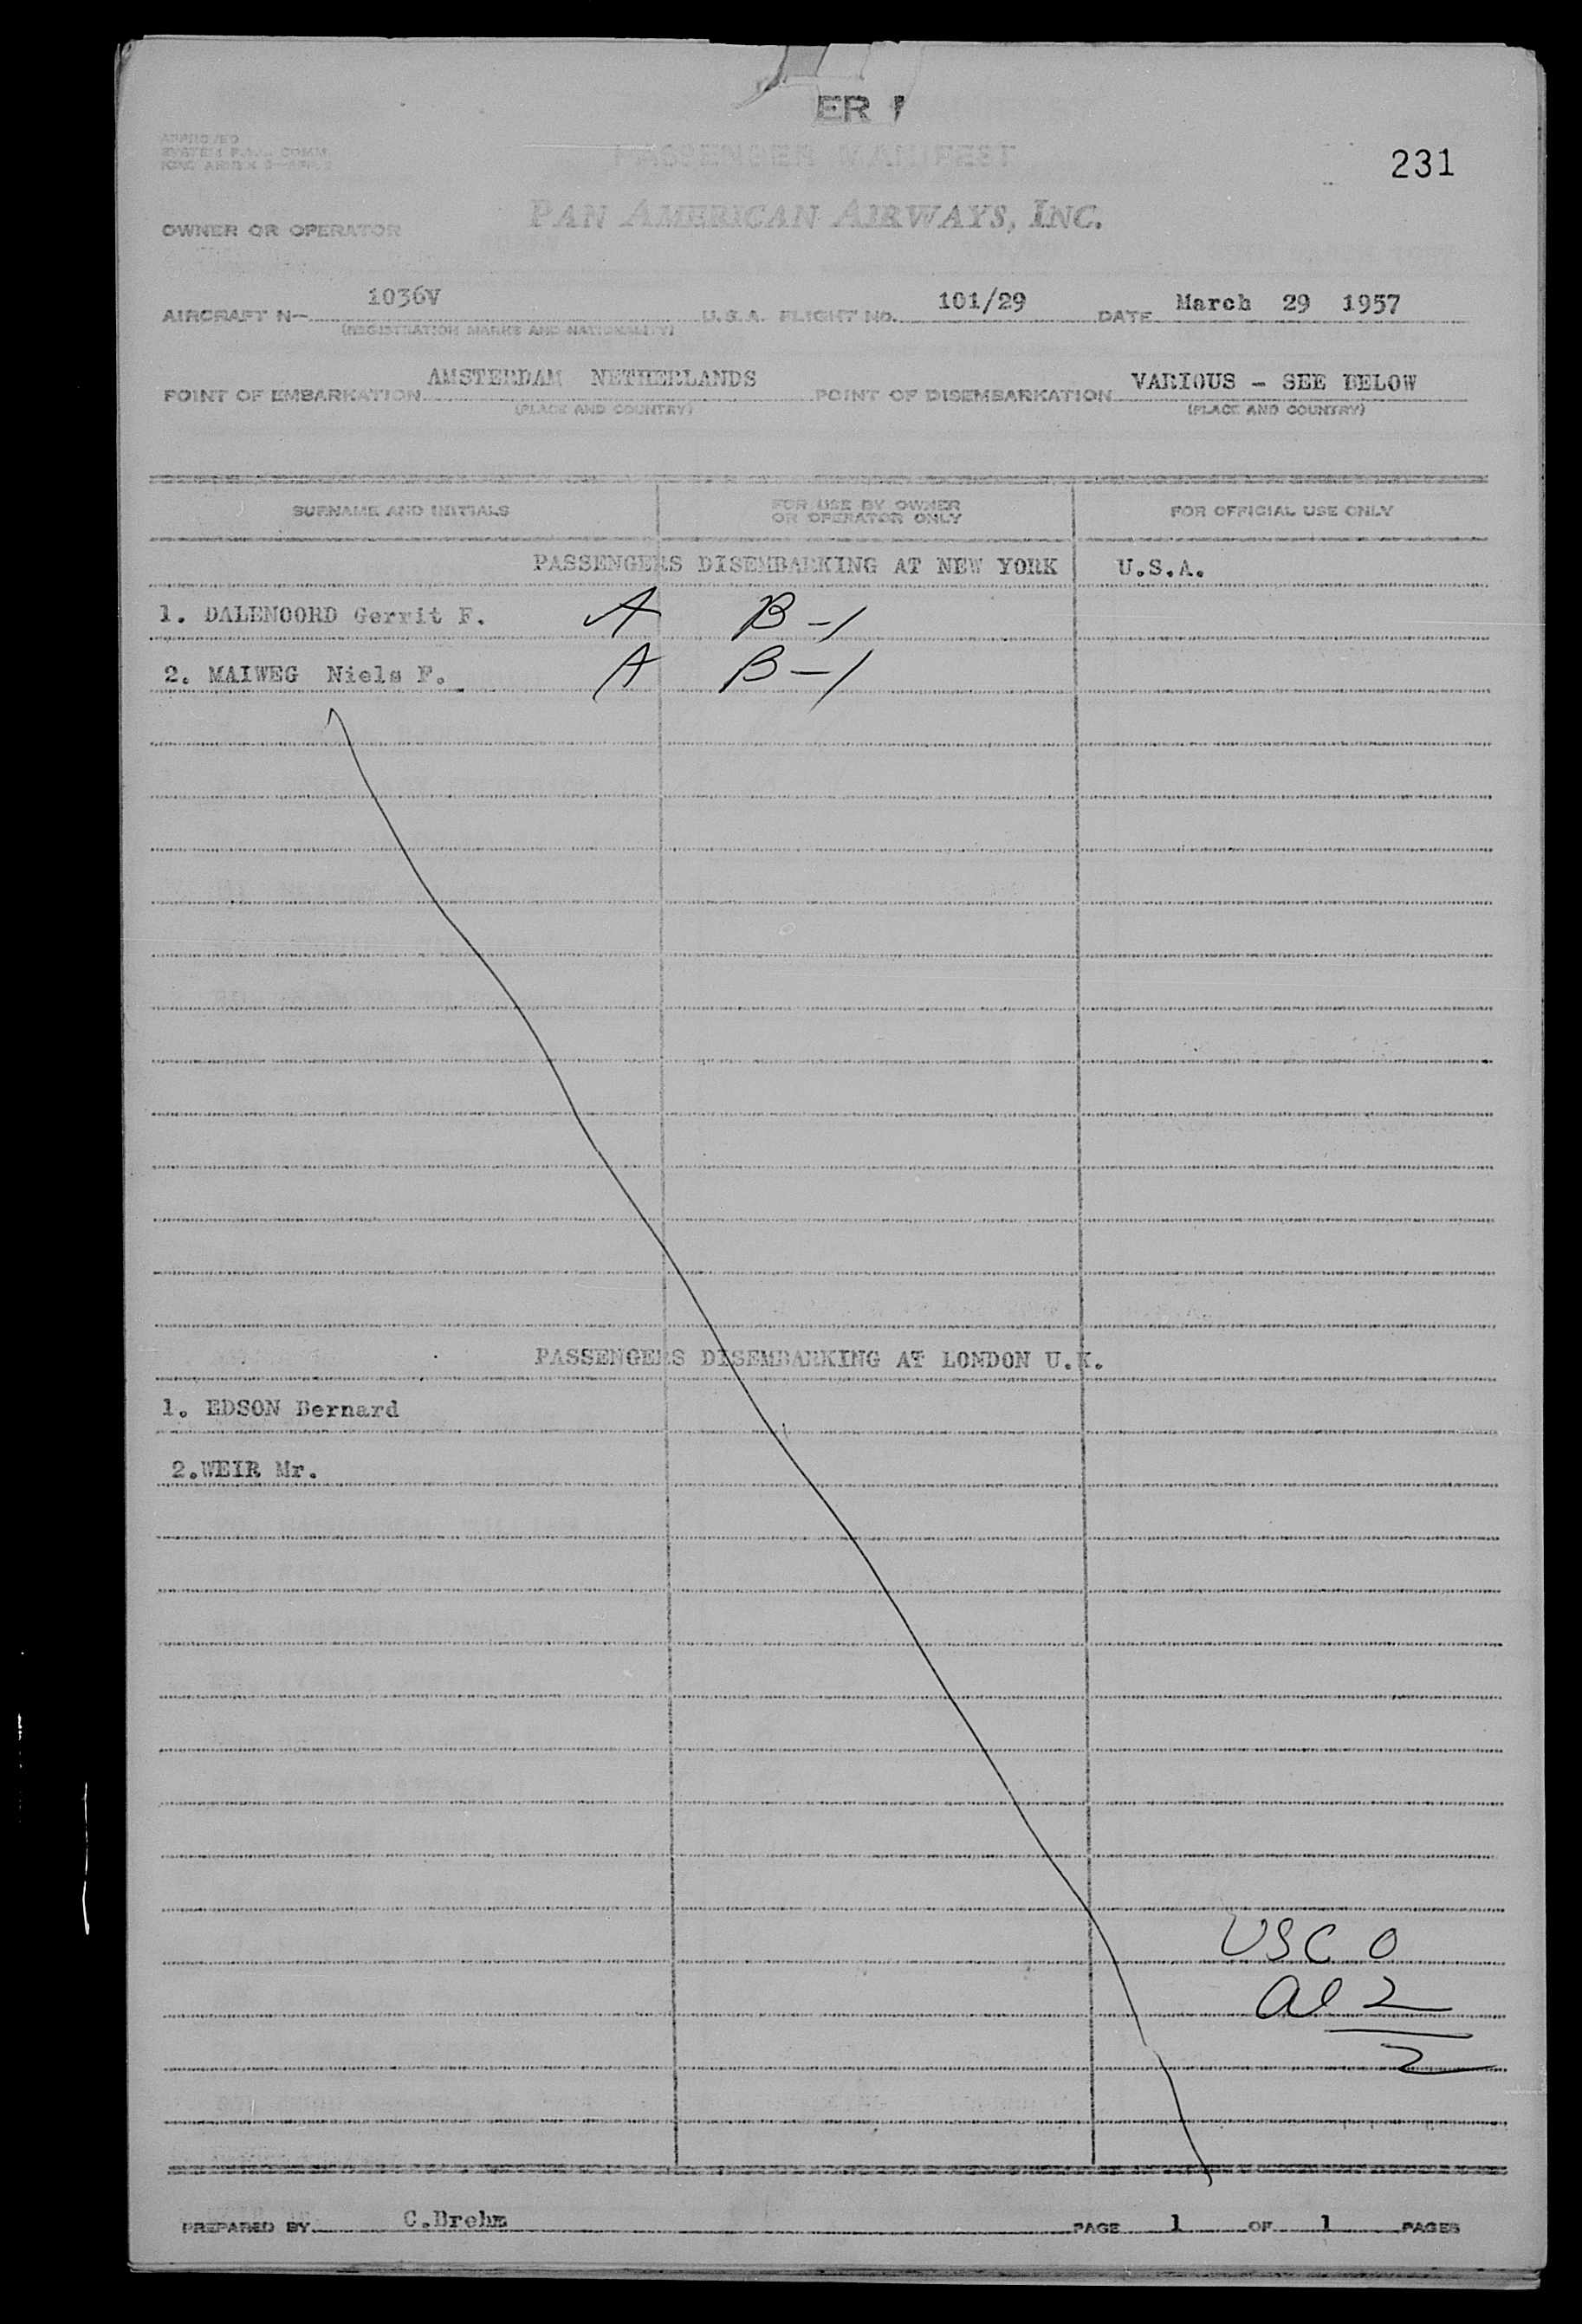 ER
APPROVED
231
PASSENGER MANIFEST
PAN AMERICAN AIRWAYS, INC.
OWNER OR OPERATOR
AIRCRAFT N— 1036V U.S.A. FLIGHT NO. 101/29 DATE March 29 1957
(REGISTRATION MARKS AND NATIONALITY)
POINT OF EMBARKATION AMSTERDAM NETHERLANDS POINT OF DISEMBARKATION VARIOUS - SEE BELOW
(PLACE AND COUNTRY) (PLACE AND COUNTRY)
SURNAME AND INITIALS FOR USE BY OWNER OR OPERATOR ONLY FOR OFFICIAL USE ONLY
PASSENGERS DISEMBARKING AT NEW YORK U.S.A.
1. DALENOORD Gerrit F. A B-1
2. MAIWEG Niels F. A B-1
PASSENGERS DISEMBARKING AT LONDON U.K.
1. EDSON Bernard
2.WEIR Mr.
USC 0
al 2
2
PREPARED BY C.Brehm PAGE 1 OF 1 PAGES